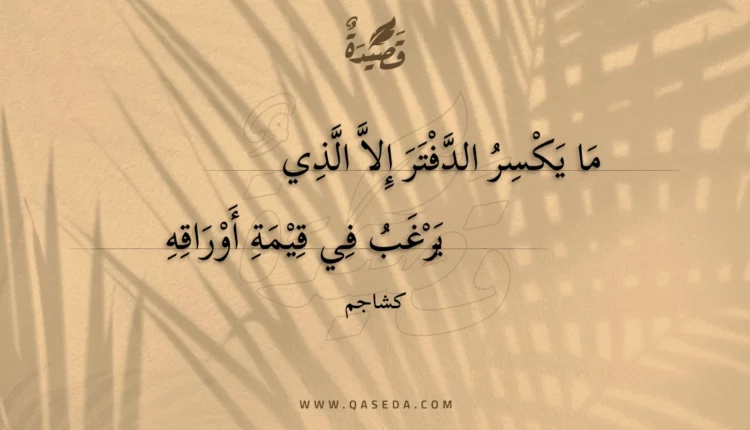 قَصِيْدَةٌ
مَا يَكْسِرُ الدَّفْتَرَ إِلاَّ الَّذِي
يَرْغَبُ فِي قِيْمَةِ أَوْرَاقِهِ
كشاجم
WWW.QASEDA.COM